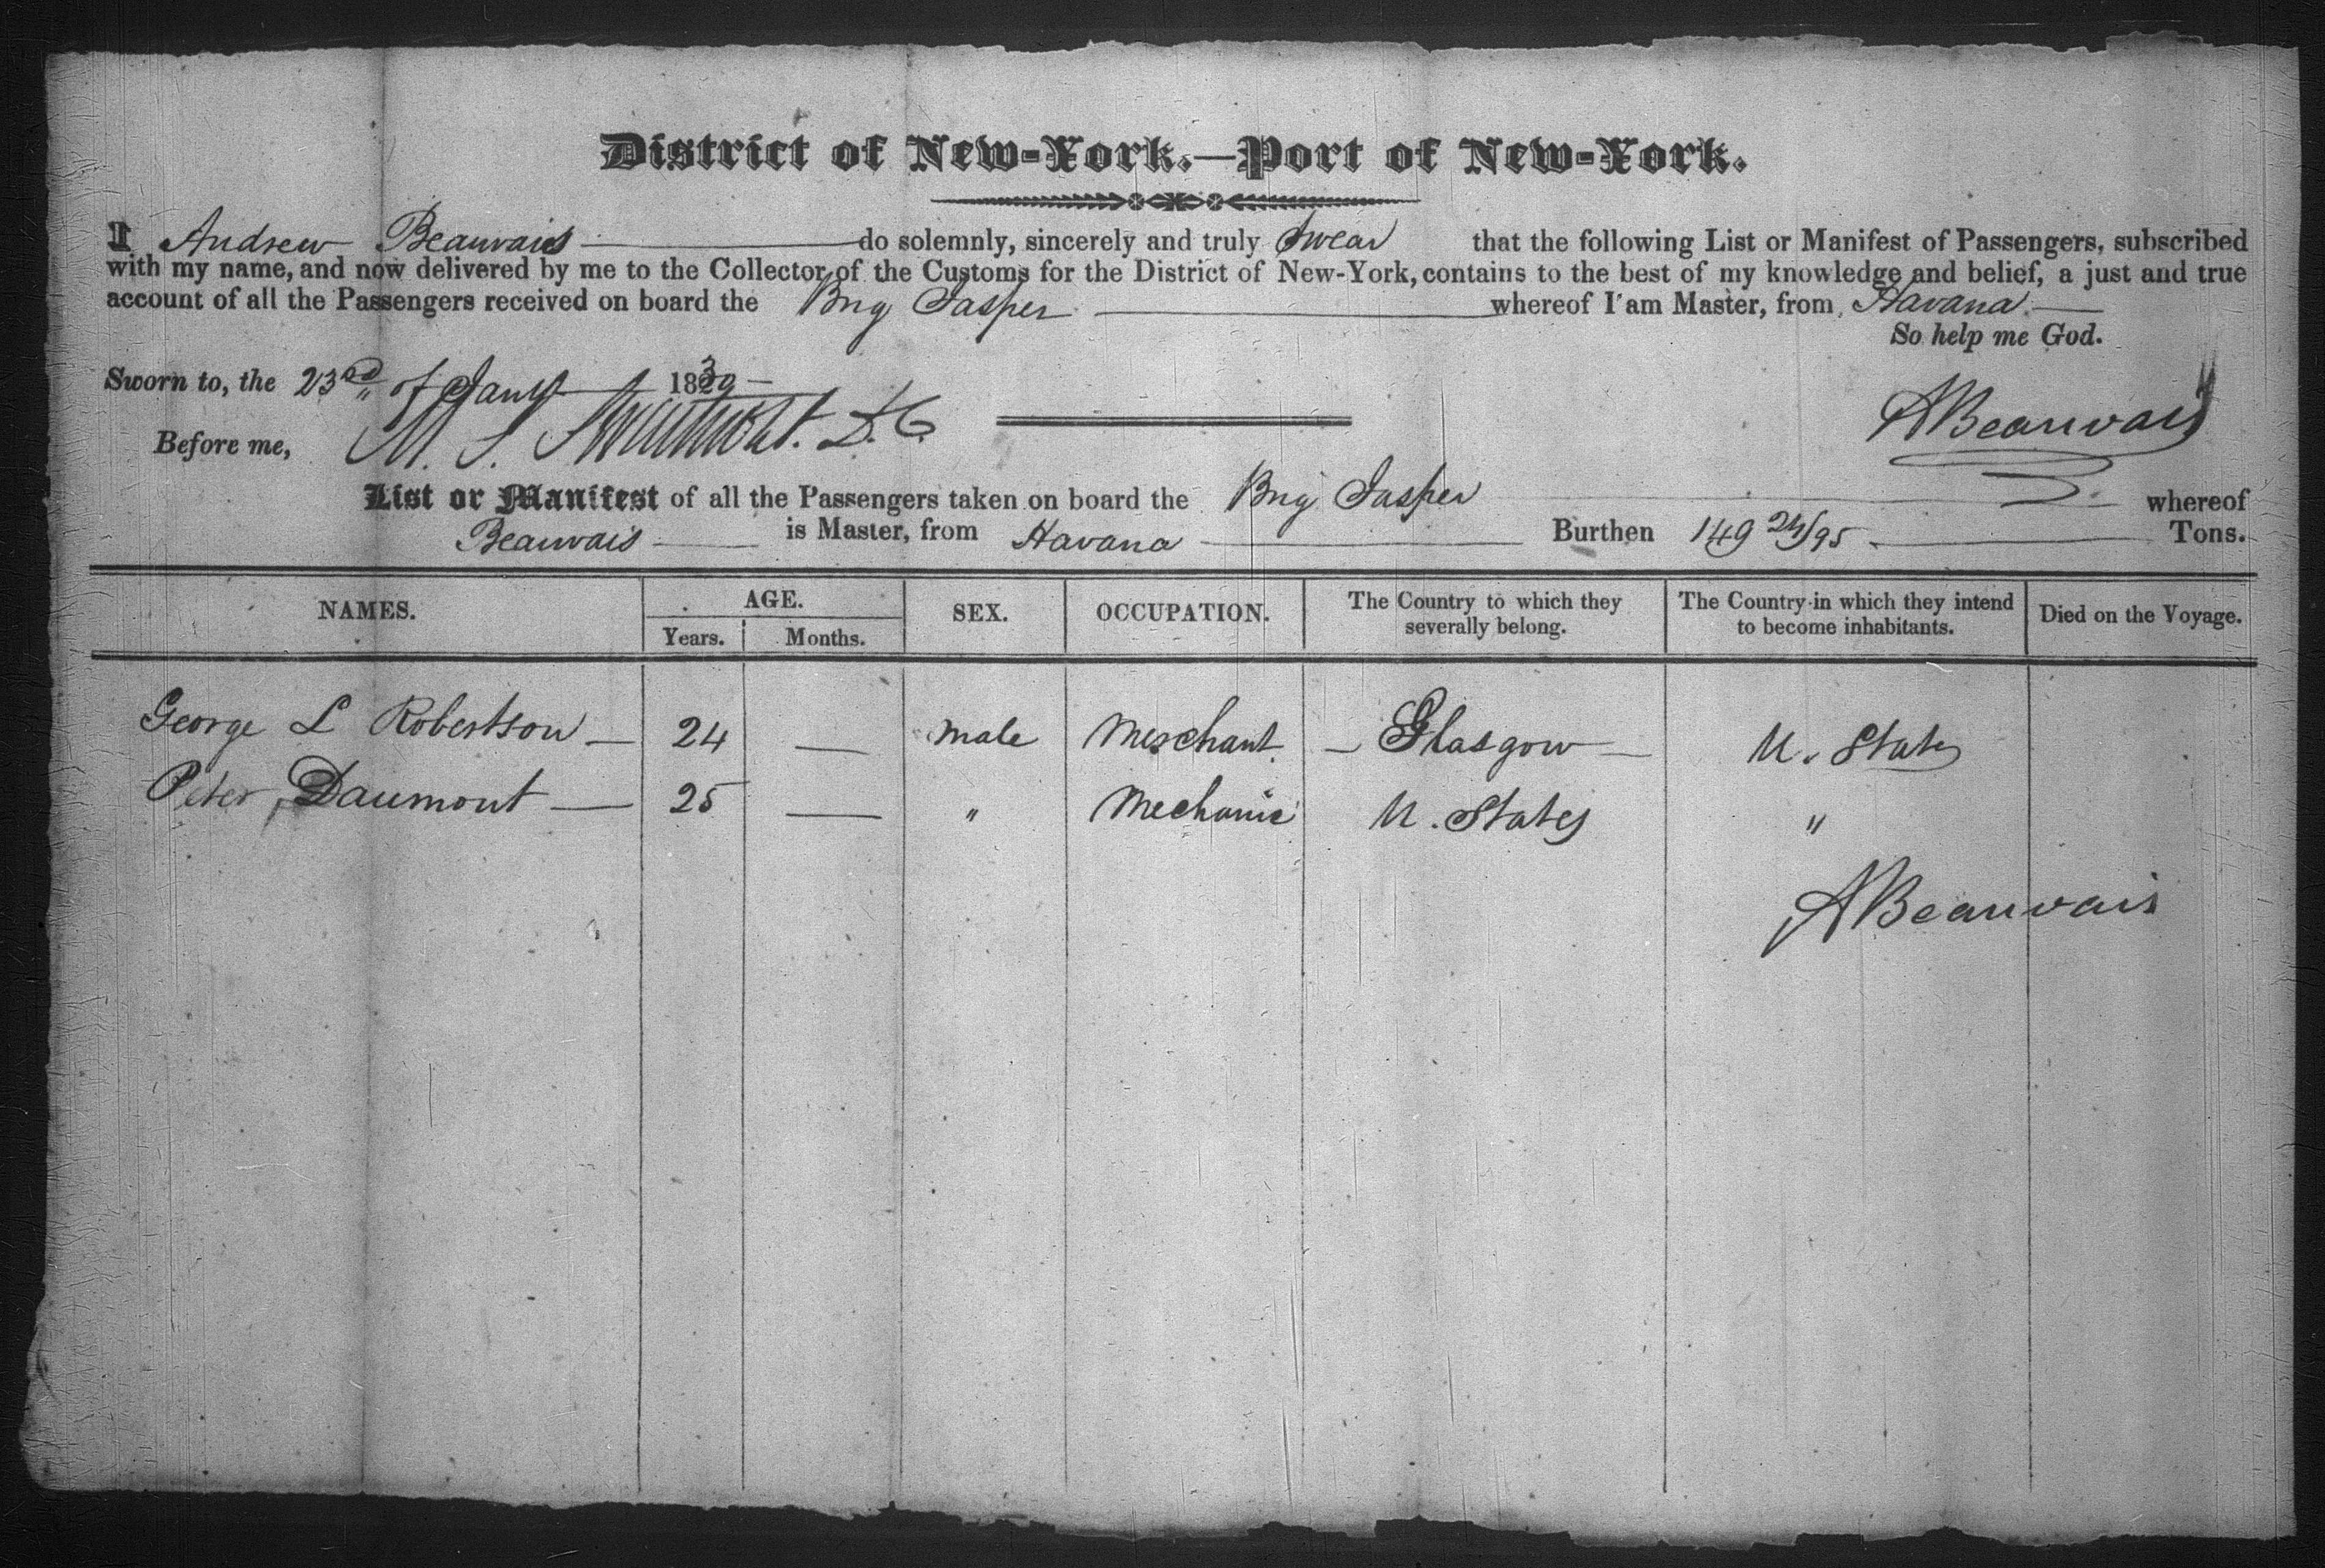 District of New-York.—Port of New-York.
I Andrew Beauvais do solemnly, sincerely and truly Swear that the following List or Manifest of Passengers, subscribed
with my name, and now delivered by me to the Collector of the Customs for the District of New-York, contains to the best of my knowledge and belief, a just and true
account of all the Passengers received on board the Brig Jasper whereof I am Master, from Havana
So help me God.
Sworn to, the 23rd of Jany 1830
ABeauvais
Before me, M. S. D. C.
List or Manifest of all the Passengers taken on board the Brig Jasper whereof
Beauvais is Master, from Havana Burthen 149 24/95 Tons.
NAMES. AGE. SEX. OCCUPATION. The Country to which they severally belong. The Country in which they intend to become inhabitants. Died on the Voyage.
Years. Months.
George L Robertson — 24 — male Merchant — Glasgow — U. States
Peter Daumont — 25 — " Mechanic U. States "
ABeauvais